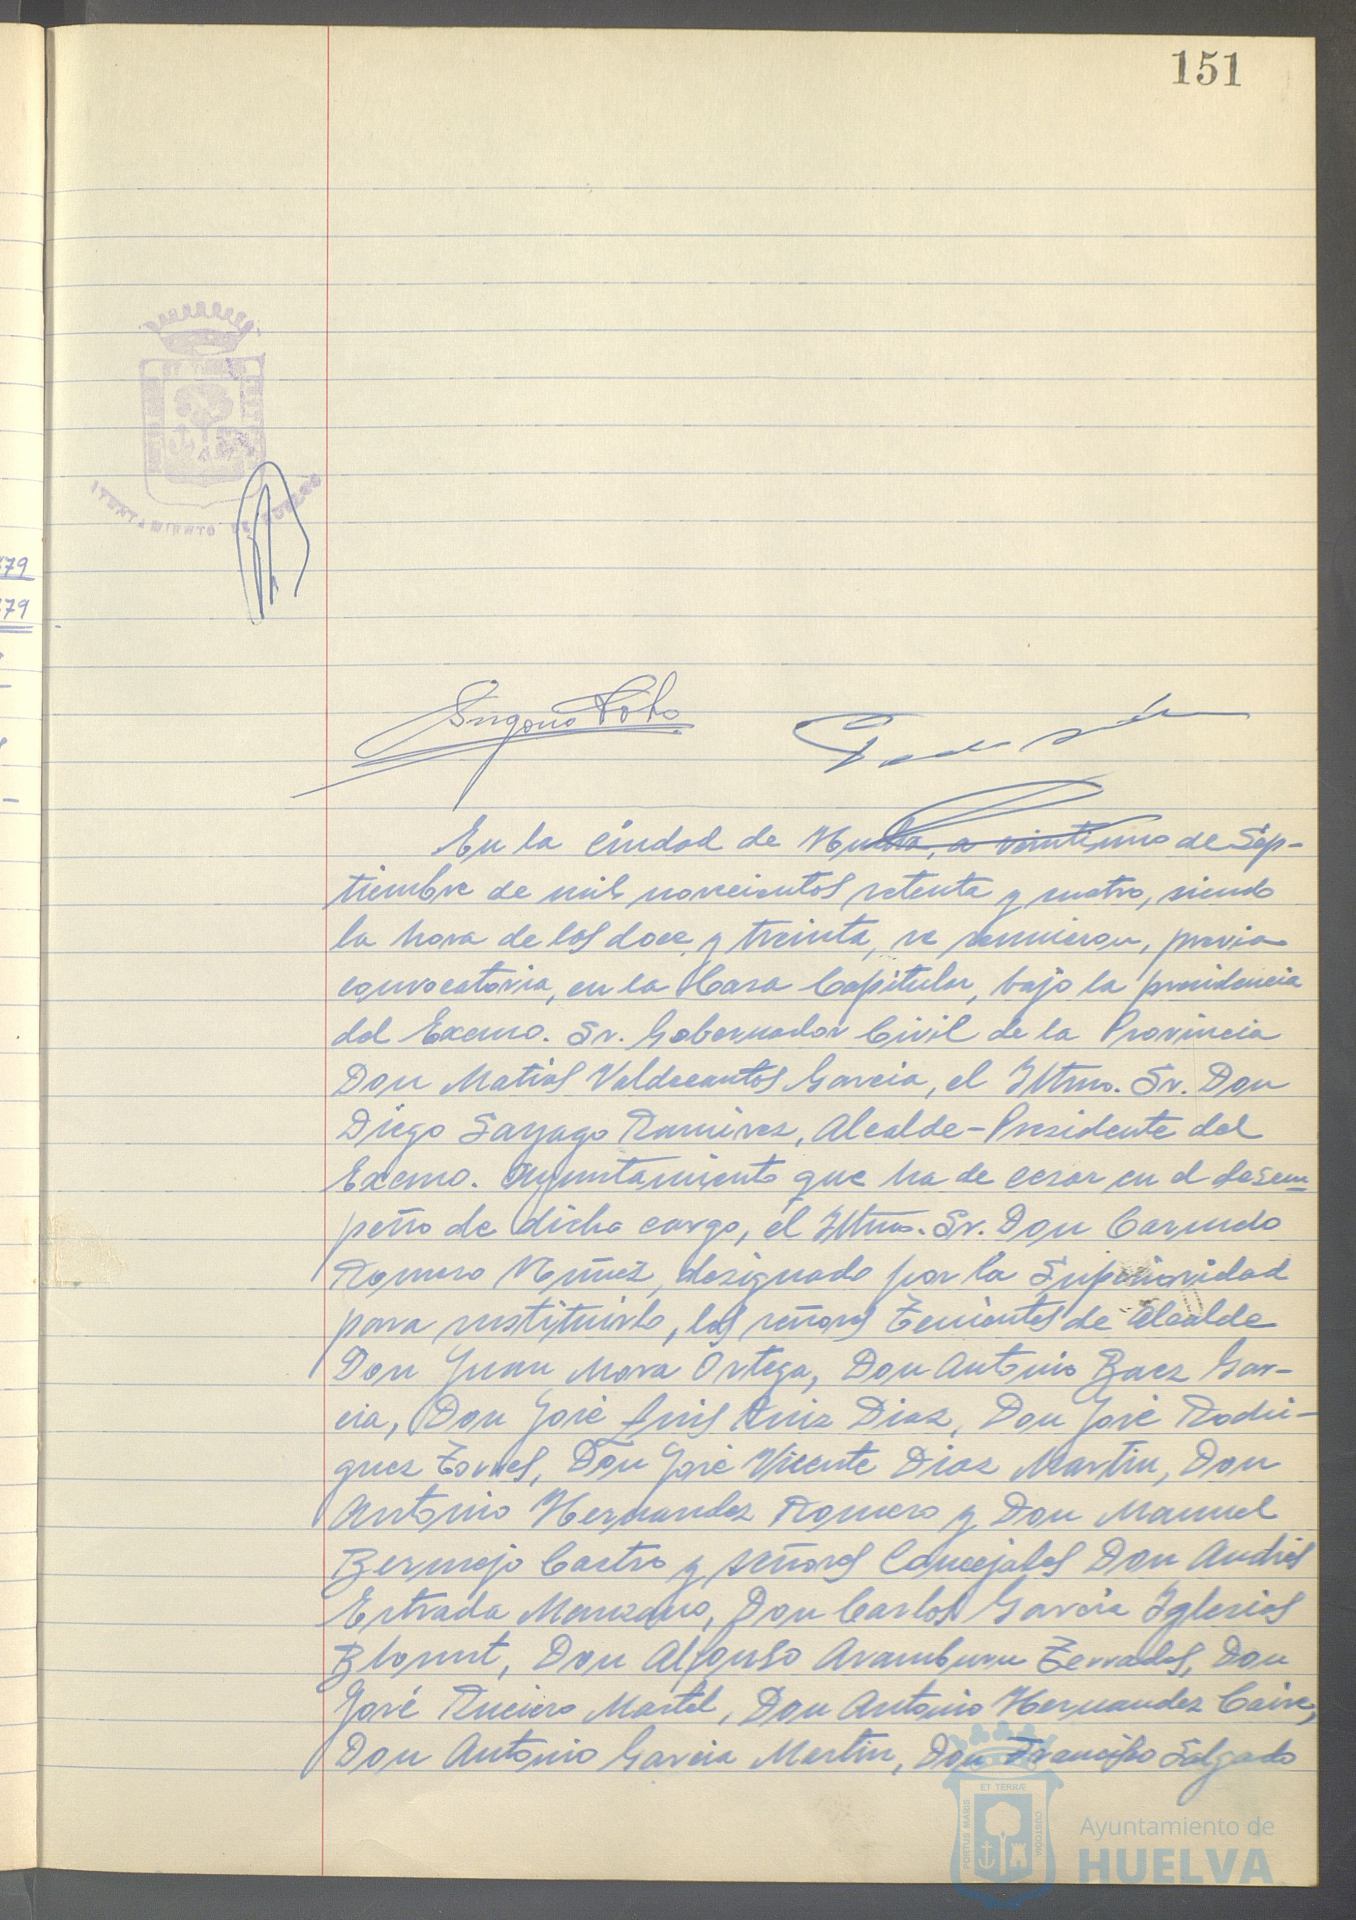 151
79
79
AYUNTAMIENTO DE
En la Ciudad de Huelva, a veintiuno de Sep-
tiembre de mil novecientos setenta y cuatro, siendo
la hora de las doce y treinta, se reunieron, previa
convocatoria, en la Casa Capitular, bajo la presidencia
del Excmo. Sr. Gobernador Civil de la Provincia
Don Matias Valdecantos Garcia, el Iltmo. Sr. Don
Diego Sayago Ramirez, Alcalde-Presidente del
Excmo. Ayuntamiento que ha de cesar en el desem-
peño de dicho cargo, el Iltmo. Sr. Don Carmelo
Romero Núñez, designado por la Superioridad
para sustituirlo, los señores Tenientes de Alcalde
Don Juan Mora Ortega, Don Antonio Baez Gar-
cia, Don José Luis Ruiz Diaz, Don José Rodri-
guez Torres, Don José Vicente Diaz Martin, Don
Antonio Hernandez Romero y Don Manuel
Bermejo Castro y señores Concejales Don Andrés
Estrada Manzano, Don Carlos Garcia Iglesias
Blount, Don Alfonso Aramburu Terrades, Don
José Ruciero Martel, Don Antonio Hernandez Caire,
Don Antonio Garcia Martin, Don Francisco Salgado
PORTUS MARIS ET TERRÆ CUSTODIA
Ayuntamiento de
HUELVA